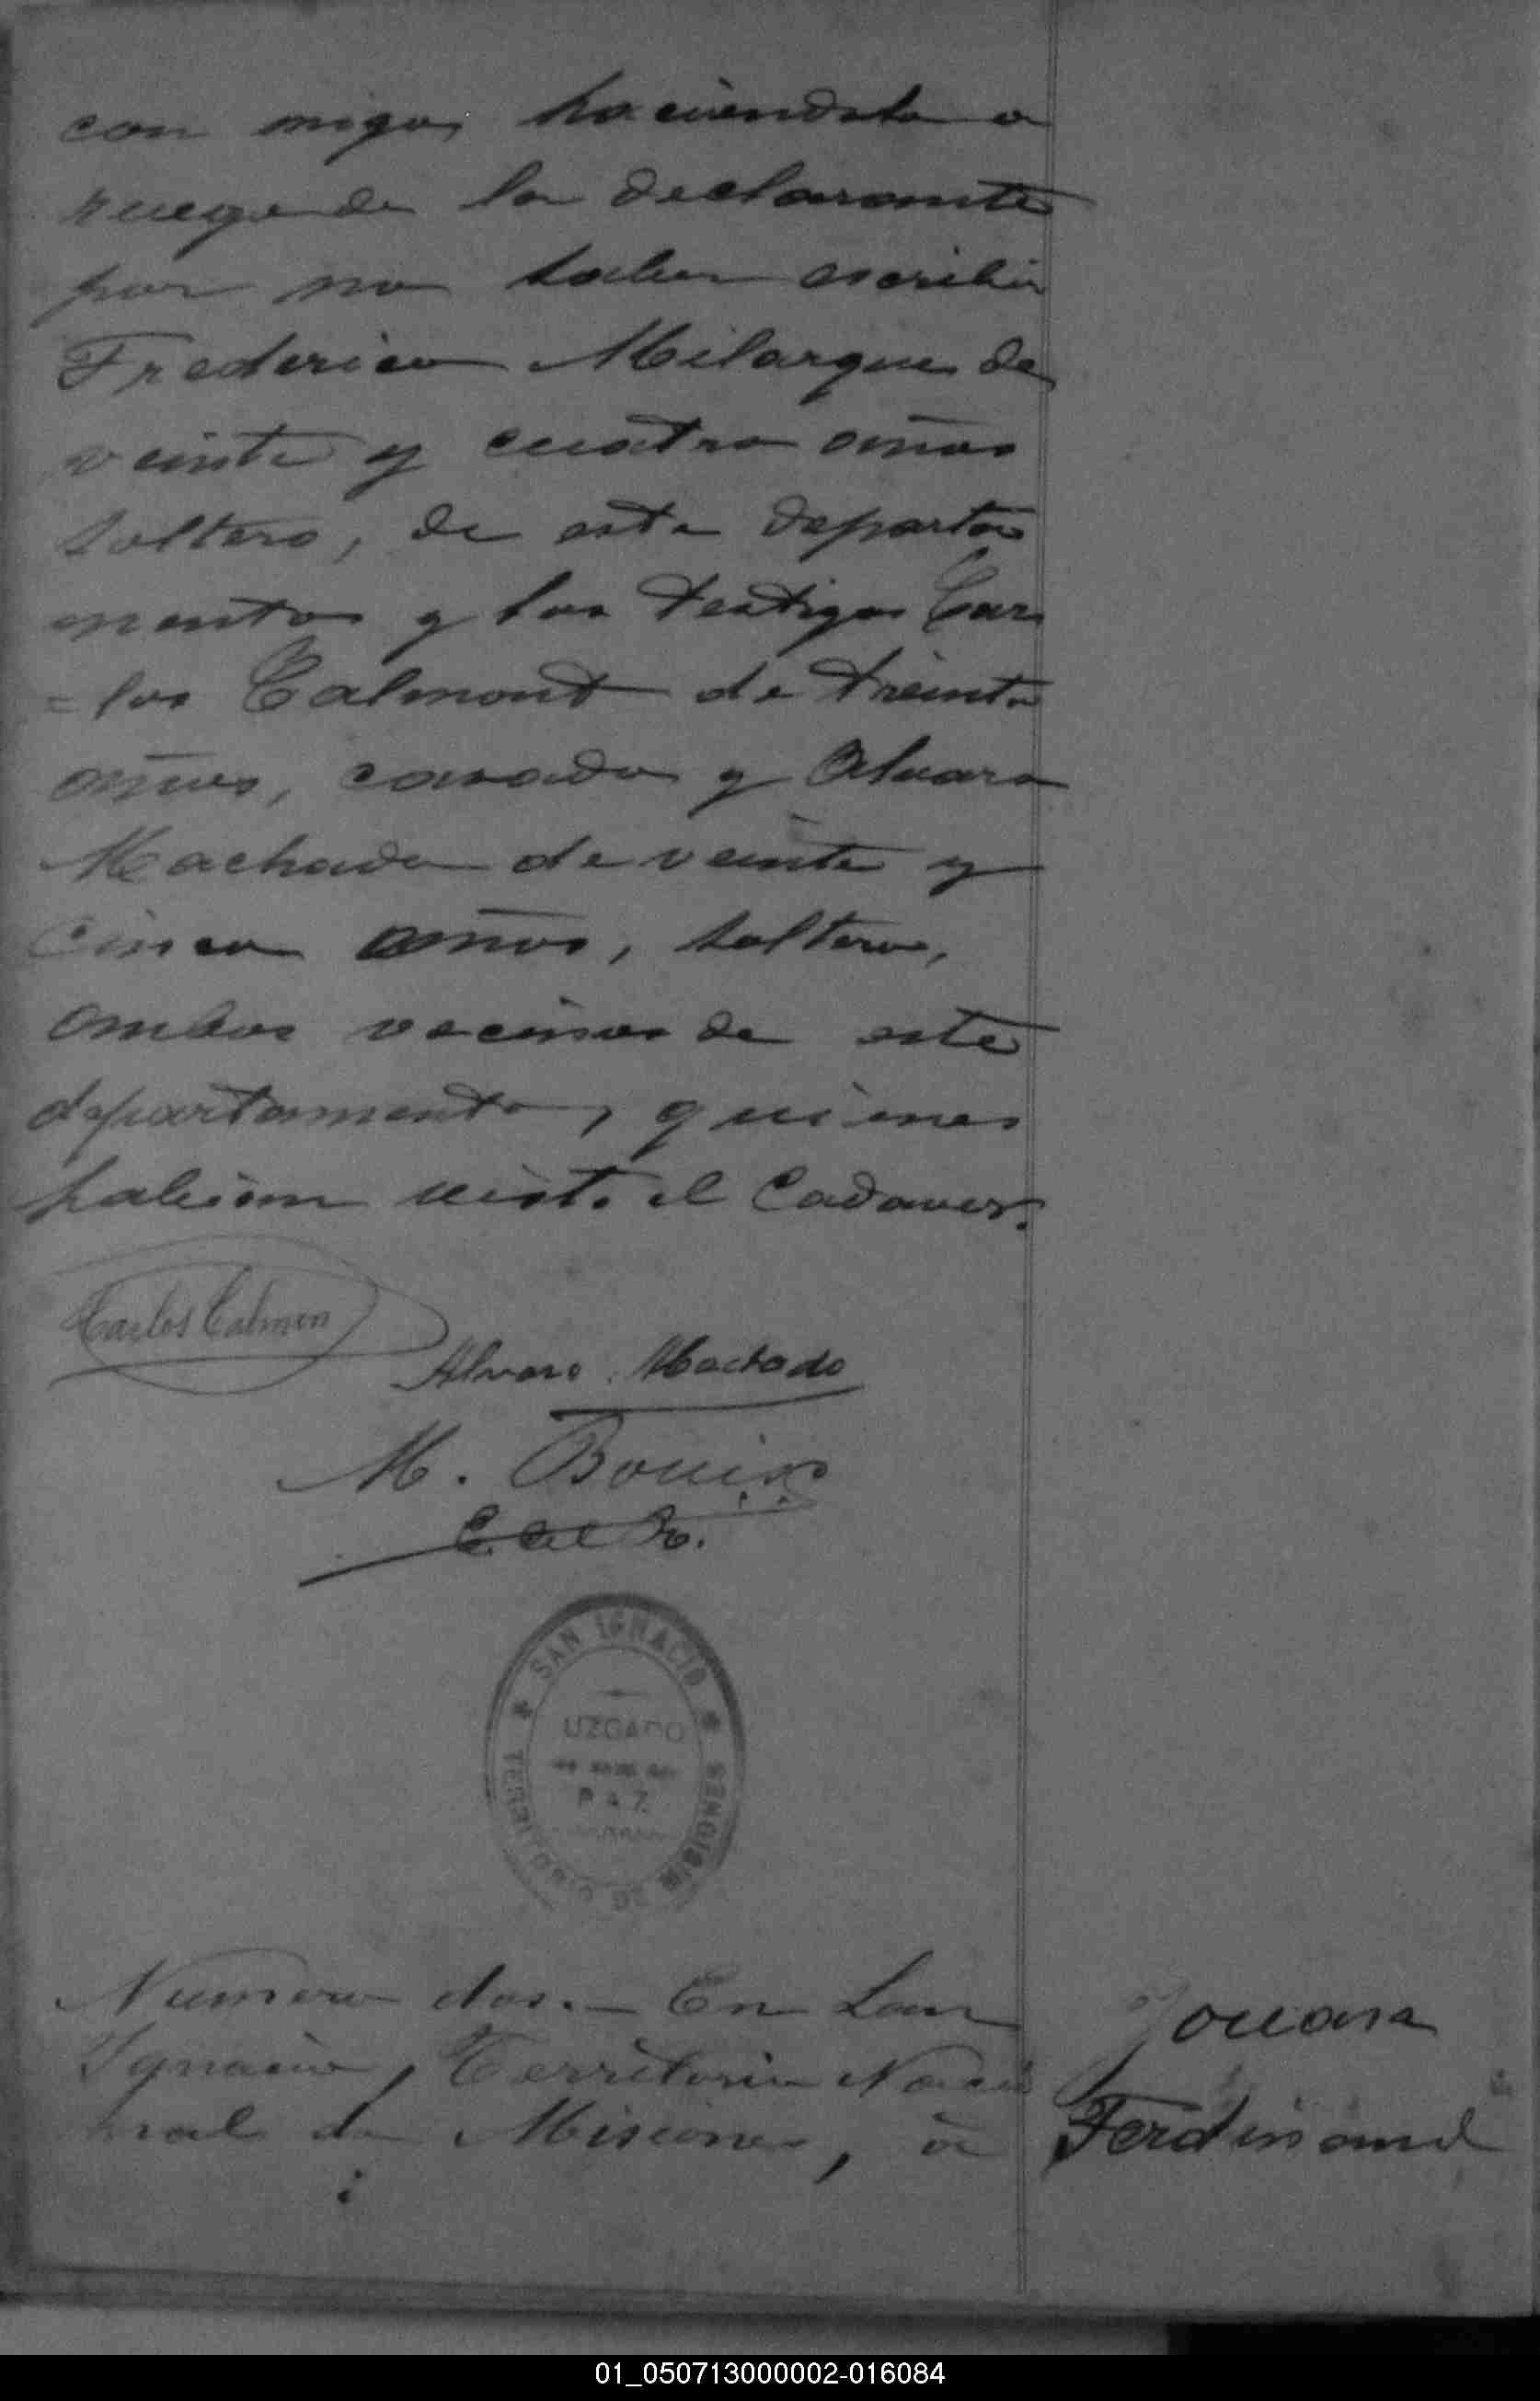 con migo, haciendolo a
ruego de la declarante
por no saber escribir
Frederico Milarques de
veinte y cuatro años
soltero, de este departa
mento y los testigos Car
=los Calmont de treinta
años, casado y Alvaro
Machado de veinte y
cinco años, soltero,
ambos vecinos de este
departamento, quienes
habian visto el Cadaver.
Carlos Calmon
Alvaro Machado
M. Bouix
E. del R.
SAN IGNACIO
UZGADO
PAZ
TERRITORIO DE MISIONES
Numero dos.- En San
Ignacio, Territorio Nacio
nal de Misiones, à
Jouara
Ferdinand
01_050713000002-016084